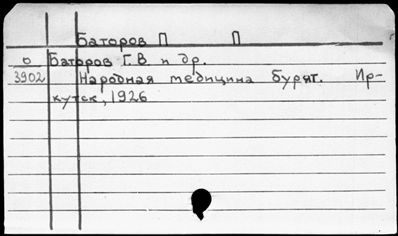 Баторов П П
о Баторов Г.В и др.
3902 Народная медицина бурят. Ир-
кутск, 1926